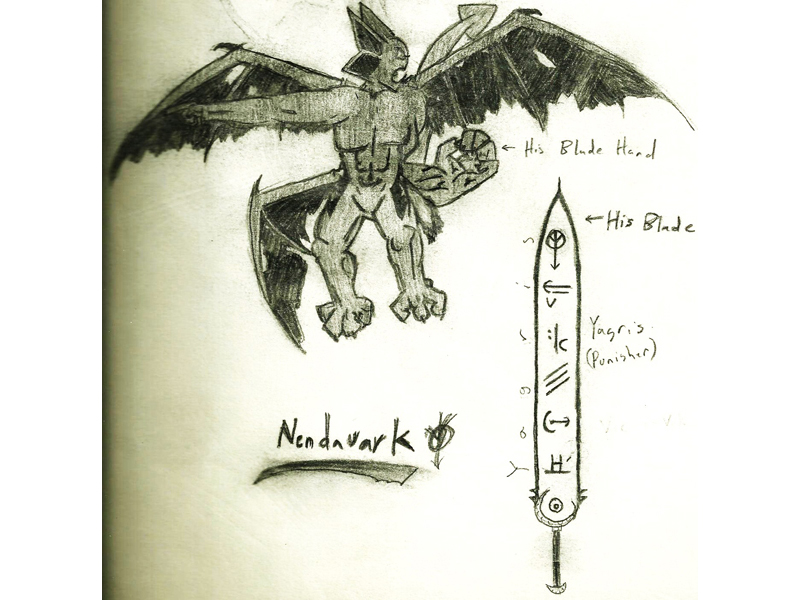 ← His Blade Hand
← His Blade
s
i
r
g
a
Y
Yagris
(Punisher)
Nendavark